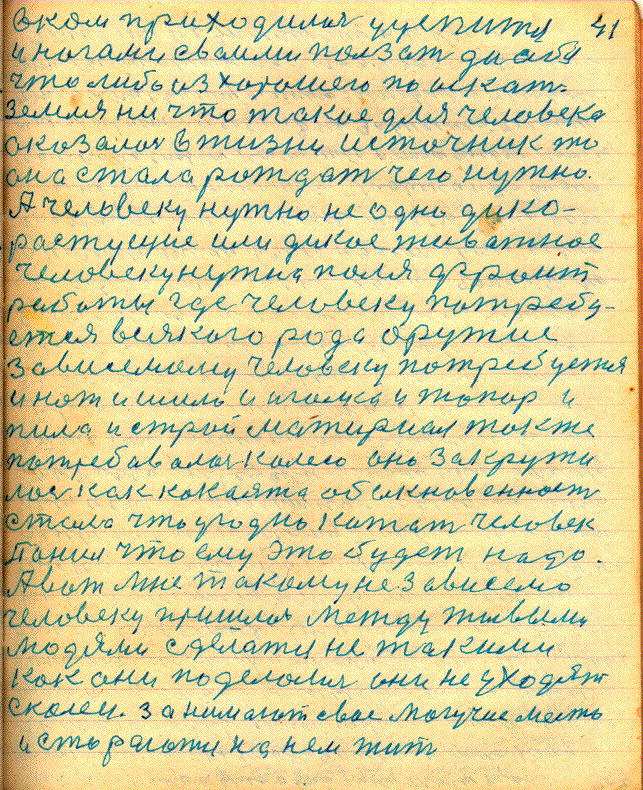 вком приходилоя уцепится 41
и ногами своими ползат для себя
что либо из хорошего по искат.
Земля ни что такое для человека
оказалоя в жизни источник то
она стала рождат чего нужно.
А человеку нужно не одно дико-
растущие или дикое животное
человеку нужна поля фронт
работы где человеку потребу-
ется всякого рода оружие
Зависемому человеку потребуется
и нож и шило и иголка и топор и
пила и строй матириал также
потребавалоя колесо оно закружи
лоя как какаята обыкновенност
стала что угодно катат человек
понил что ему это будет надо.
А вот мне такому не зависемо
человеку пришлоя между живыми
людями сделатя не такими
как они поделалия они не уходят
сколеи. занимают свое могучие место
и стораютя на нем жит